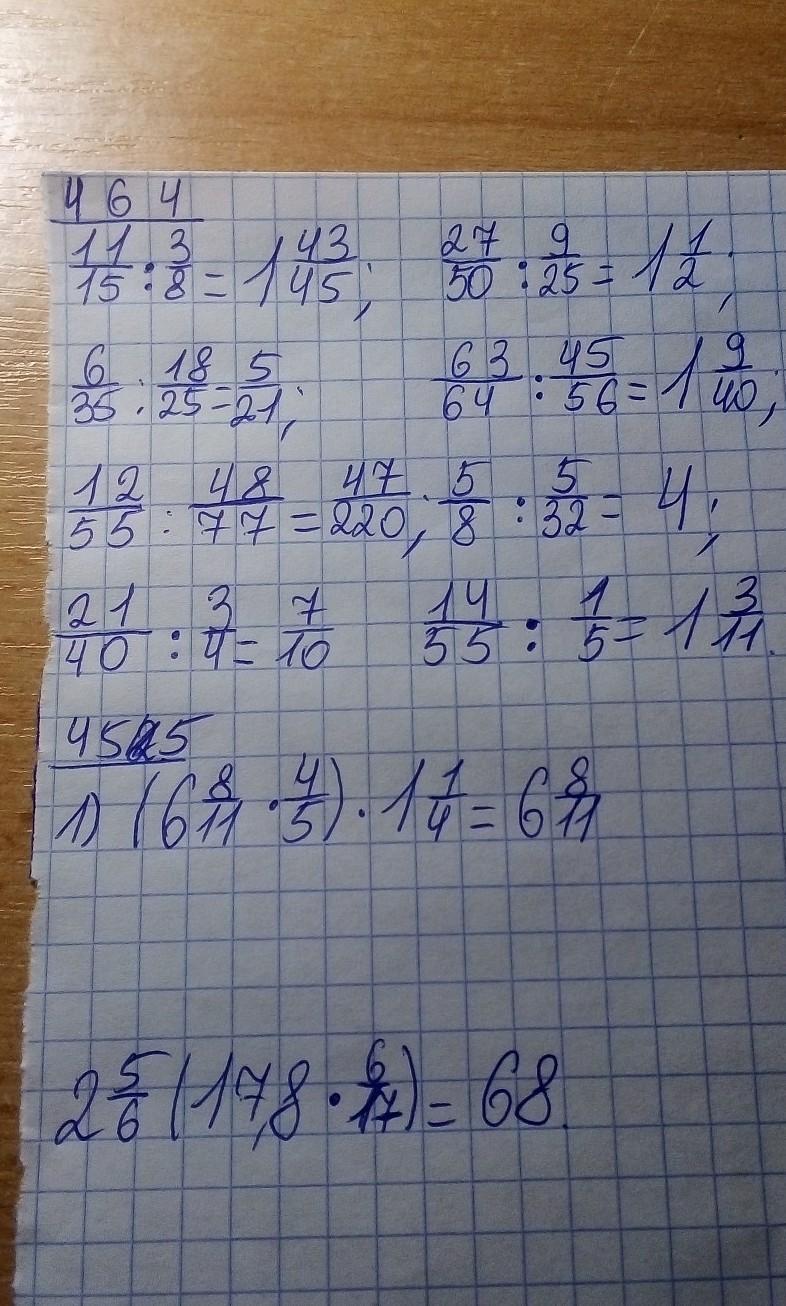 464
11/15 : 3/8 = 1 43/45; 27/50 : 9/25 = 1 1/2;
6/35 : 18/25 = 5/21; 63/64 : 45/56 = 1 9/40;
12/55 : 48/77 = 47/220; 5/8 : 5/32 = 4;
21/40 : 3/4 = 7/10 14/55 : 1/5 = 1 3/11.
455
1) (6 8/11 · 4/5) · 1 1/4 = 6 8/11
2 5/6 (17,8 · 6/17) = 68.